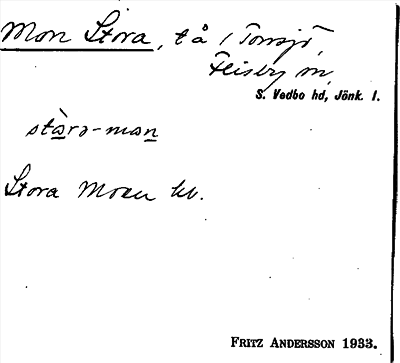 Mon Stora, tå i Tomsjö,
Flisby sn,
S. Vedbo hd, Jönk. l.
stàrə-man
Stora Moen kb.
FRITZ ANDERSSON 1933.